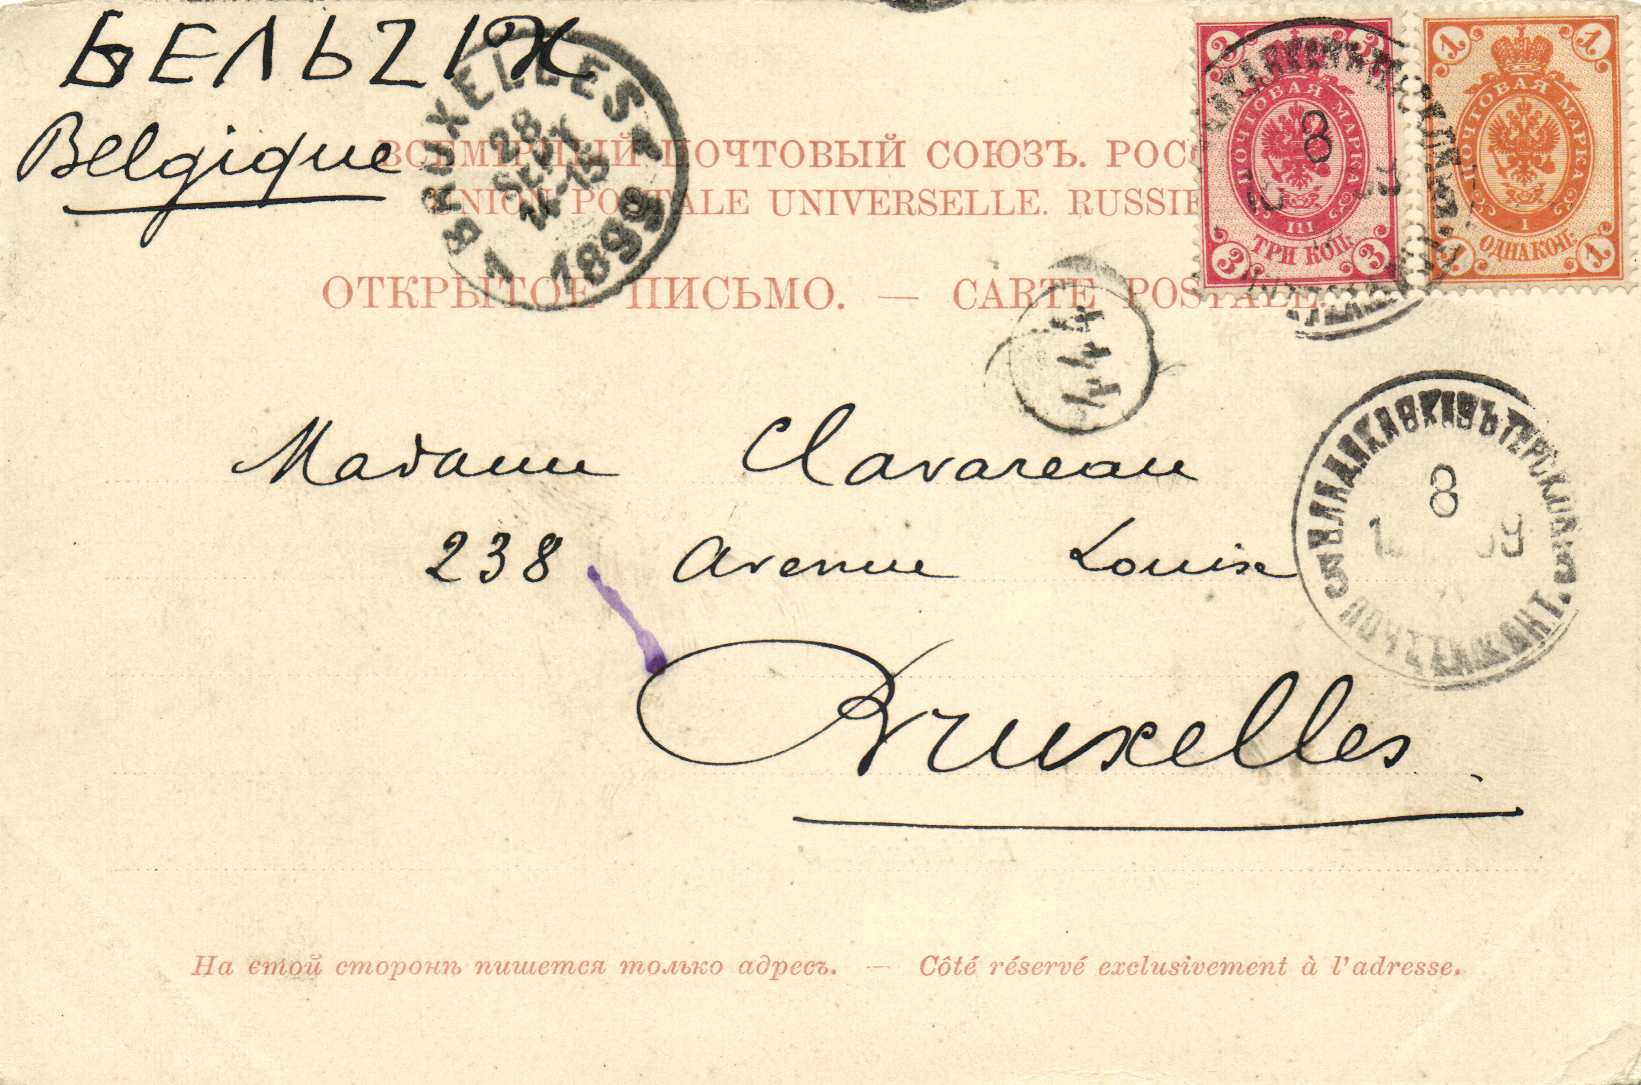 БЕЛЬГІЯ
Belgique
ВСЕМІРНЫЙ ПОЧТОВЫЙ СОЮЗЪ.
UNION POSTALE UNIVERSELLE. RUSSIE
ОТКРЫТОЕ ПИСЬМО. — CARTE POSTALE.
BRUXELLES 1
28
SEPT
14-15
1899
1
3 3
ПОЧТОВАЯ МАРКА
III
ТРИ КОП.
3 3
1 1
ПОЧТОВАЯ МАРКА
I
ОДНА КОП.
1 1
8
444
ВЛАДИКАВКАЗЪ ТЕРСК.
8
ПОЧТ.
Madame Clavareau
238 Avenue Louise
Bruxelles.
На етой сторонѣ пишется только адресъ. — Côté réservé exclusivement à l'adresse.